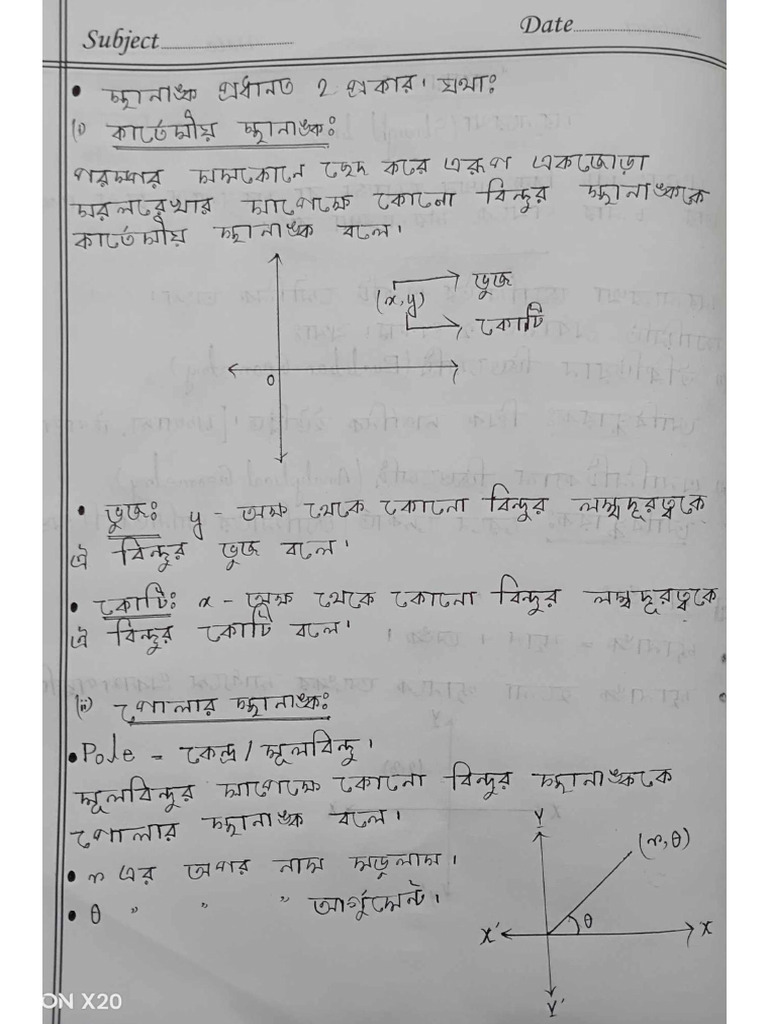 Subject
Date
• স্থানাঙ্ক প্রধানত ২ প্রকার। যথাঃ
(i) কার্তেসীয় স্থানাঙ্কঃ
পরস্পর সমকোনে ছেদ করে এরূপ একজোড়া
সরলরেখার সাপেক্ষে কোনো বিন্দুর স্থানাঙ্ককে
কার্তেসীয় স্থানাঙ্ক বলে।
(x,y)
ভুজ
কোটি
0
• ভুজঃ y - অক্ষ থেকে কোনো বিন্দুর লম্বদূরত্বকে
ঐ বিন্দুর ভুজ বলে।
• কোটিঃ x - অক্ষ থেকে কোনো বিন্দুর লম্বদূরত্বকে
ঐ বিন্দুর কোটি বলে।
(ii) পোলার স্থানাঙ্কঃ
• Pole = কেন্দ্র / মূলবিন্দু।
মূলবিন্দুর সাপেক্ষে কোনো বিন্দুর স্থানাঙ্ককে
পোলার স্থানাঙ্ক বলে।
• r এর অপর নাম মডুলাস।
• θ " " " আর্গুমেন্ট।
Y
(r,θ)
θ
X'
X
Y'
ON X20